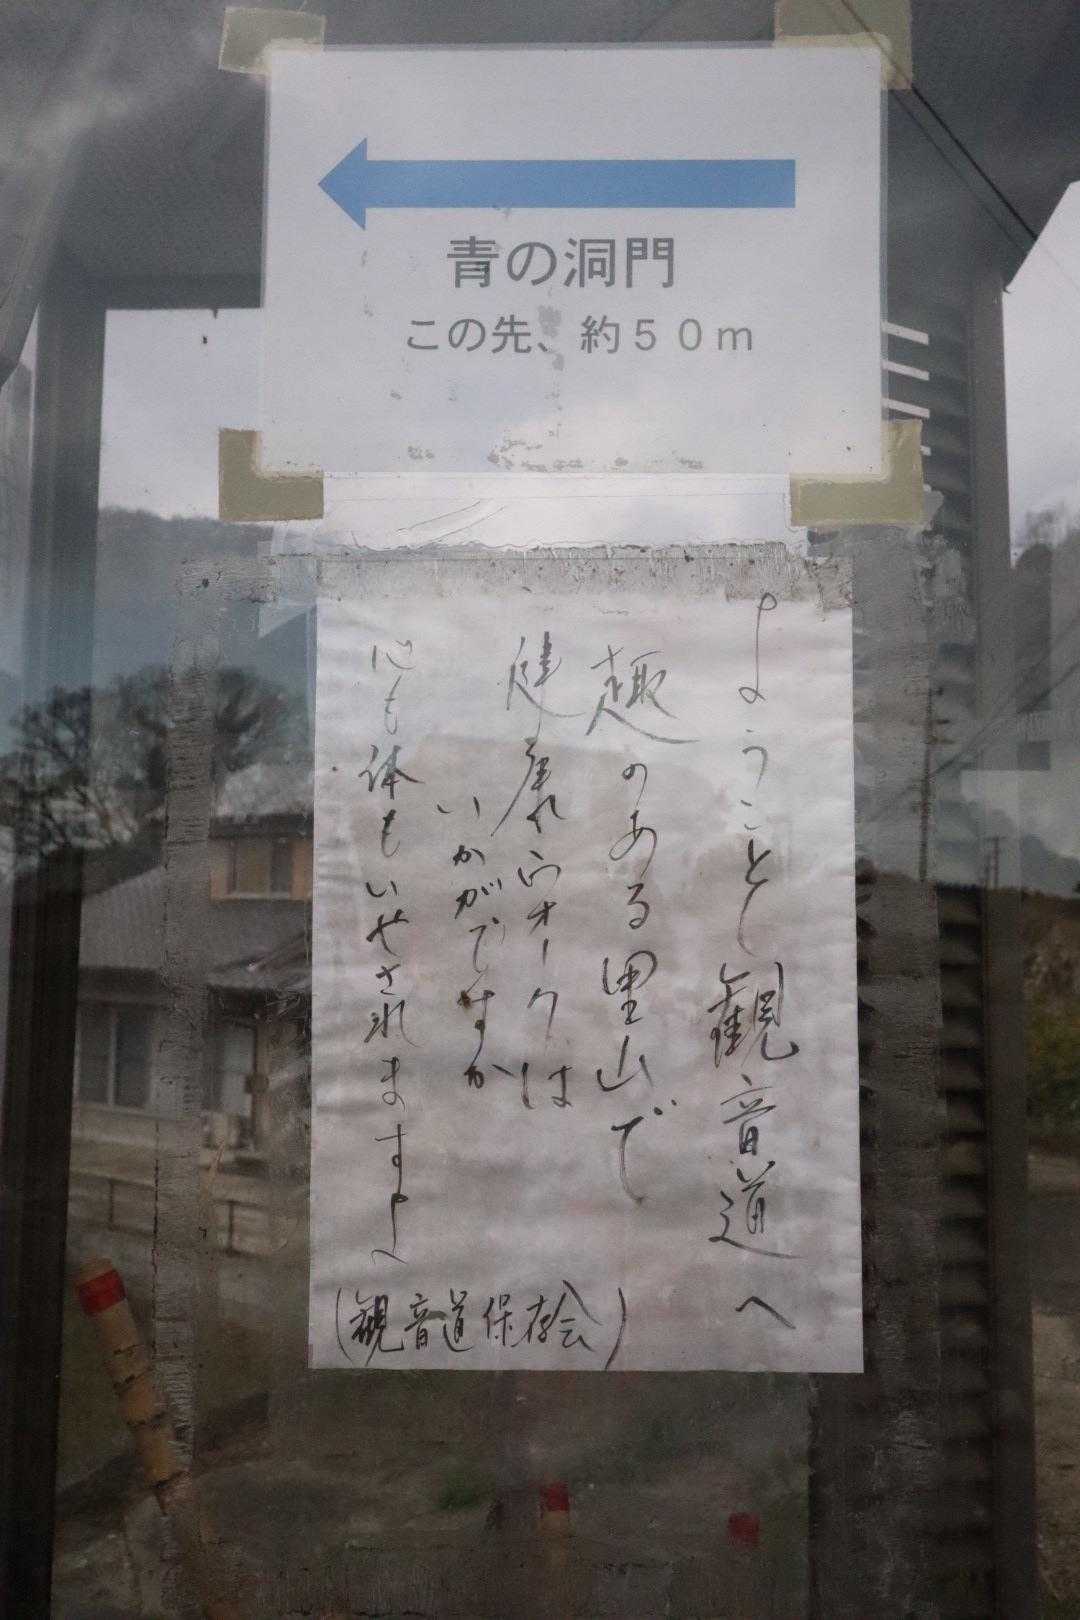 青の洞門
この先、約５０ｍ
ようこそ観音道へ
趣のある里山で
健康ウオークは
いかがですか
心も体もいやされますよ
(観音道保存会)